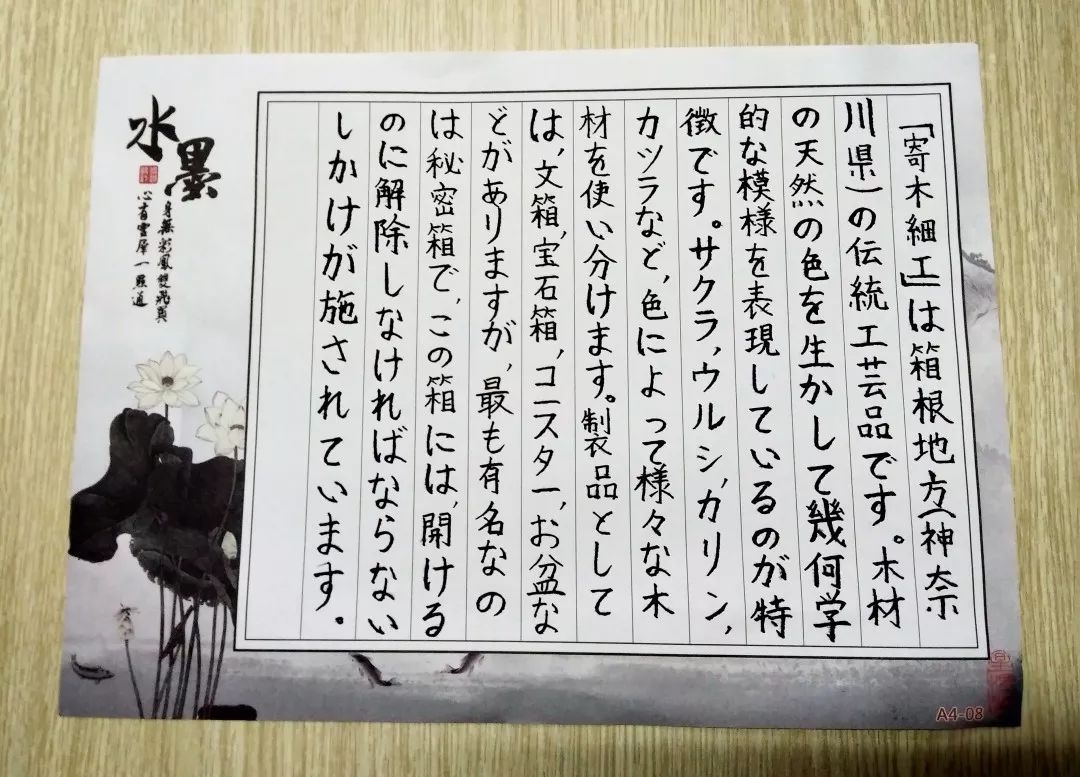 「寄木細工」は箱根地方(神奈
川県)の伝統工芸品です。木材
の天然の色を生かして幾何学
的な模様を表現しているのが特
徴です。サクラ,ウルシ,カリン,
カツラなど,色によって様々な木
材を使い分けます。製品として
は,文箱,宝石箱,コースター,お盆な
どがありますが,最も有名なの
は秘密箱で,この箱には,開ける
のに解除しなければならない
しかけが施されています。
水墨
身無彩鳳雙飛翼
心有靈犀一點通
A4-08